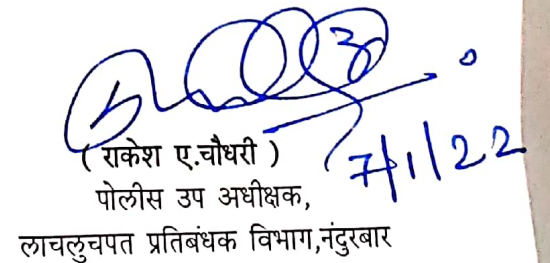 7/1/22
( राकेश ए.चौधरी )
पोलीस उप अधीक्षक,
लाचलुचपत प्रतिबंधक विभाग,नंदुरबार